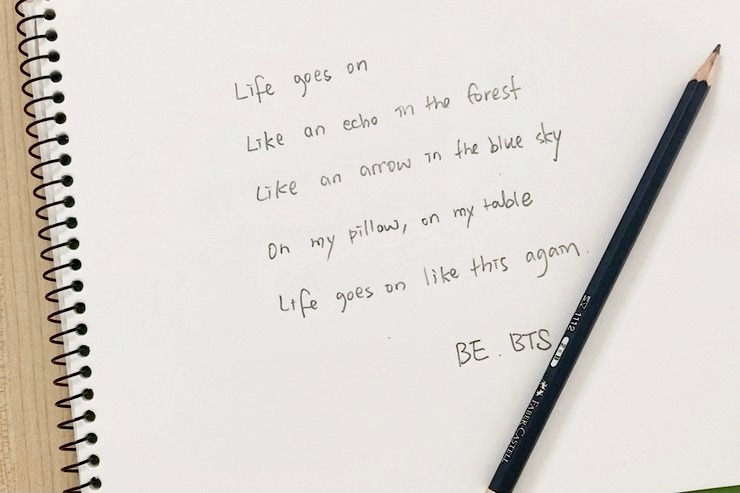 Life goes on
Like an echo in the forest
Like an arrow in the blue sky
On my pillow, on my table
Life goes on like this again.
BE. BTS
FABER-CASTELL